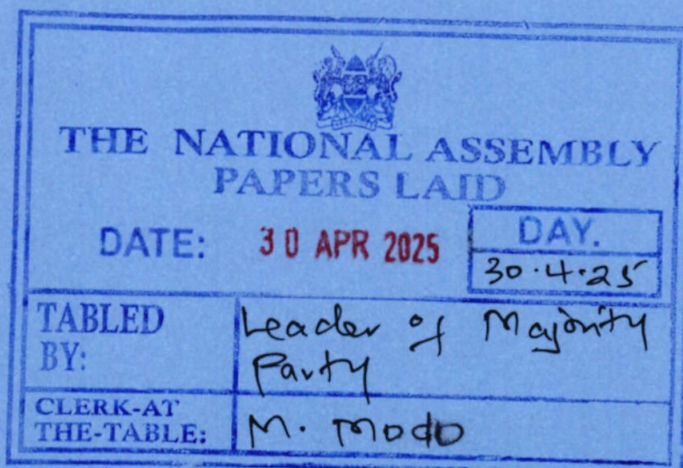 THE NATIONAL ASSEMBLY
PAPERS LAID
DATE: 30 APR 2025
DAY.
30.4.25
TABLED BY: Leader of Majority Party
CLERK-AT THE-TABLE: M. Modo